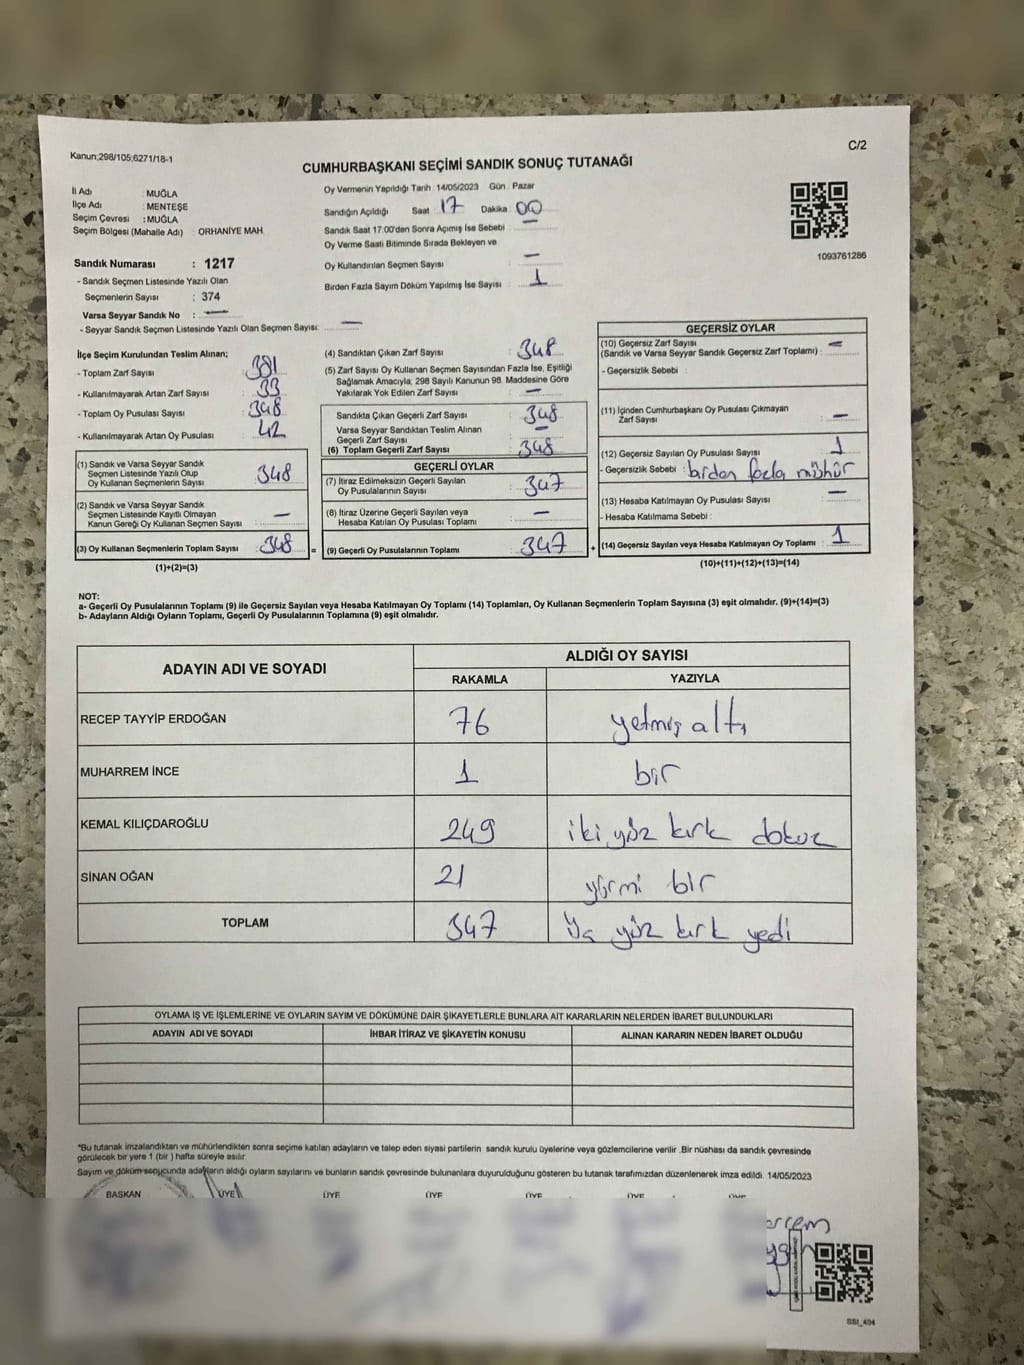 Kanun;298/105;6271/18-1
C/2
CUMHURBAŞKANI SEÇİMİ SANDIK SONUÇ TUTANAĞI
İl Adı : MUĞLA
İlçe Adı : MENTEŞE
Seçim Çevresi : MUĞLA
Seçim Bölgesi (Mahalle Adı) : ORHANİYE MAH.
Oy Vermenin Yapıldığı Tarih : 14/05/2023 Gün : Pazar
Sandığın Açıldığı Saat 17 Dakika 00
Sandık Saat 17.00'den Sonra Açılmış İse Sebebi : —
Oy Verme Saati Bitiminde Sırada Bekleyen ve
Oy Kullandırılan Seçmen Sayısı : —
Birden Fazla Sayım Döküm Yapılmış İse Sayısı : 1
1093761286
Sandık Numarası : 1217
- Sandık Seçmen Listesinde Yazılı Olan
Seçmenlerin Sayısı : 374
Varsa Seyyar Sandık No : —
- Seyyar Sandık Seçmen Listesinde Yazılı Olan Seçmen Sayısı: —
İlçe Seçim Kurulundan Teslim Alınan;
- Toplam Zarf Sayısı : 381
- Kullanılmayarak Artan Zarf Sayısı : 33
- Toplam Oy Pusulası Sayısı : 348
- Kullanılmayarak Artan Oy Pusulası : 42
(1) Sandık ve Varsa Seyyar Sandık
Seçmen Listesinde Yazılı Olup
Oy Kullanan Seçmenlerin Sayısı : 348
(2) Sandık ve Varsa Seyyar Sandık
Seçmen Listesinde Kayıtlı Olmayan
Kanun Gereği Oy Kullanan Seçmen Sayısı : —
(3) Oy Kullanan Seçmenlerin Toplam Sayısı : 348
(1)+(2)=(3)
(4) Sandıktan Çıkan Zarf Sayısı : 348
(5) Zarf Sayısı Oy Kullanan Seçmen Sayısından Fazla İse, Eşitliği
Sağlamak Amacıyla, 298 Sayılı Kanunun 98. Maddesine Göre
Yakılarak Yok Edilen Zarf Sayısı : —
Sandıkta Çıkan Geçerli Zarf Sayısı : 348
Varsa Seyyar Sandıktan Teslim Alınan
Geçerli Zarf Sayısı : —
(6) Toplam Geçerli Zarf Sayısı : 348
GEÇERLİ OYLAR
(7) İtiraz Edilmeksizin Geçerli Sayılan
Oy Pusulalarının Sayısı : 347
(8) İtiraz Üzerine Geçerli Sayılan veya
Hesaba Katılan Oy Pusulası Toplamı : —
= (9) Geçerli Oy Pusulalarının Toplamı : 347 +
GEÇERSİZ OYLAR
(10) Geçersiz Zarf Sayısı
(Sandık ve Varsa Seyyar Sandık Geçersiz Zarf Toplamı) : —
- Geçersizlik Sebebi :
(11) İçinden Cumhurbaşkanı Oy Pusulası Çıkmayan
Zarf Sayısı : —
(12) Geçersiz Sayılan Oy Pusulası Sayısı : 1
- Geçersizlik Sebebi : birden fazla mühür
(13) Hesaba Katılmayan Oy Pusulası Sayısı : —
- Hesaba Katılmama Sebebi :
(14) Geçersiz Sayılan veya Hesaba Katılmayan Oy Toplamı : 1
(10)+(11)+(12)+(13)=(14)
NOT:
a- Geçerli Oy Pusulalarının Toplamı (9) ile Geçersiz Sayılan veya Hesaba Katılmayan Oy Toplamı (14) Toplamları, Oy Kullanan Seçmenlerin Toplam Sayısına (3) eşit olmalıdır. (9)+(14)=(3)
b- Adayların Aldığı Oyların Toplamı, Geçerli Oy Pusulalarının Toplamına (9) eşit olmalıdır.
ADAYIN ADI VE SOYADI
ALDIĞI OY SAYISI
RAKAMLA YAZIYLA
RECEP TAYYİP ERDOĞAN 76 yetmiş altı
MUHARREM İNCE 1 bir
KEMAL KILIÇDAROĞLU 249 iki yüz kırk dokuz
SİNAN OĞAN 21 yirmi bir
TOPLAM 347 üç yüz kırk yedi
OYLAMA İŞ VE İŞLEMLERİNE VE OYLARIN SAYIM VE DÖKÜMÜNE DAİR ŞİKAYETLERLE BUNLARA AİT KARARLARIN NELERDEN İBARET BULUNDUKLARI
ADAYIN ADI VE SOYADI İHBAR İTİRAZ VE ŞİKAYETİN KONUSU ALINAN KARARIN NEDEN İBARET OLDUĞU
*Bu tutanak imzalandıktan ve mühürlendikten sonra seçime katılan adayların ve talep eden siyasi partilerin sandık kurulu üyelerine veya gözlemcilerine verilir .Bir nüshası da sandık çevresinde
görülecek bir yere 1 (bir ) hafta süreyle asılır.
Sayım ve döküm sonucunda adayların aldığı oyların sayılarını ve bunların sandık çevresinde bulunanlara duyurulduğunu gösteren bu tutanak tarafımızdan düzenlenerek imza edildi. 14/05/2023
BAŞKAN ÜYE ÜYE ÜYE ÜYE ÜYE ÜYE